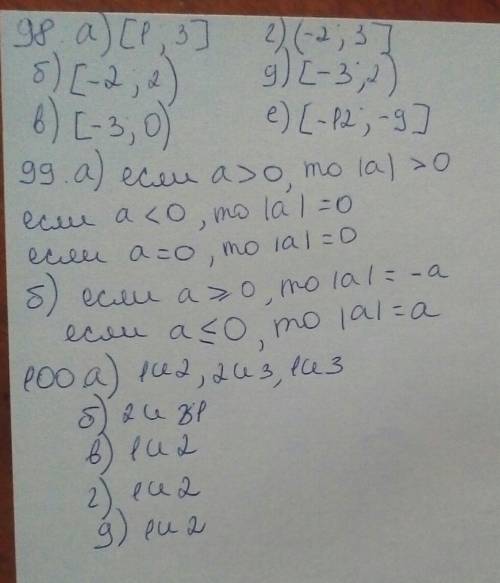 98. а) [1, 3] г) (-2; 3]
б) [-2; 2) д) [-3; 2)
в) [-3; 0) е) [-12; -9]
99. а) если a>0, то |a| >0
если a<0, то |a| =0
если a=0, то |a| =0
б) если a ⩾ 0, то |a| = -a
если a ≤ 0, то |a| = a
100 а) 1и2, 2и3, 1и3
б) 2и 1
в) 1и 2
г) 1и 2
д) 1и 2